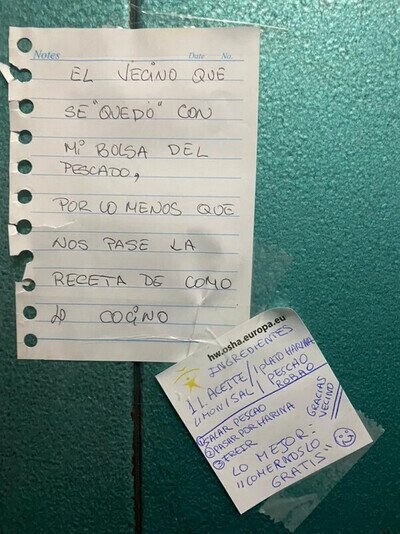 Notes
Date No.
EL VECINO QUE
SE "QUEDÓ" CON
MI BOLSA DEL
PESCADO,
POR LO MENOS QUE
NOS PASE LA
RECETA DE COMO
LO COCINO
hw.osha.europa.eu
INGREDIENTES
1 L. ACEITE/1 PLATO HARINA
LIMON/SAL/1 PESCAO
ROBAO
① SACAR PESCAO
② PASAR POR HARINA
③ FREIR
GRACIAS
VECINO
LO MEJOR:
"COMERNOSLO
GRATIS"